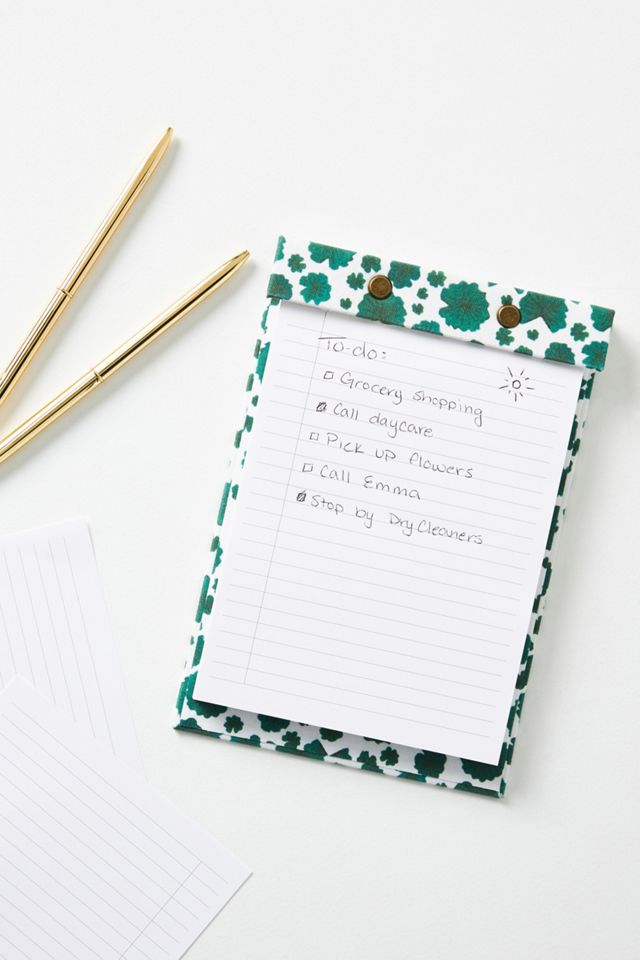 To-do:
Grocery shopping
Call daycare
Pick up flowers
Call Emma
Stop by Dry Cleaners